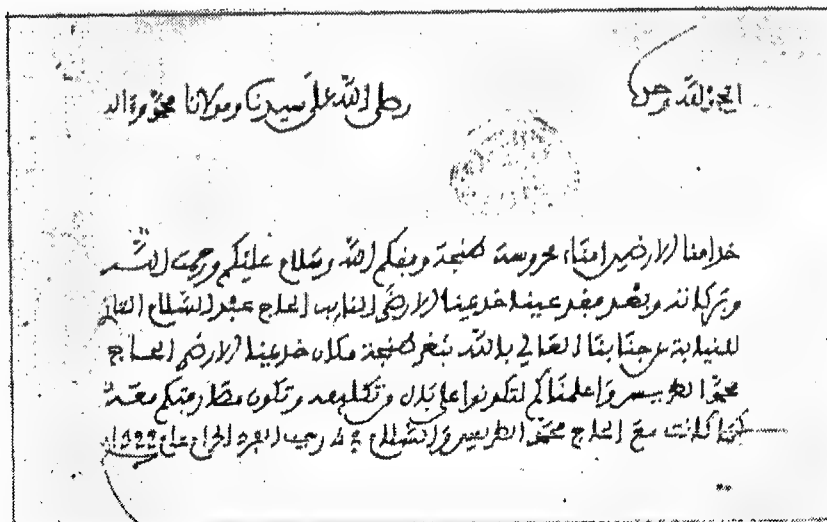 الحمد لله وحده
وصلى الله على سيدنا ومولانا محمد وآله
خدامنا الارضين امناء محروسة طنجة وفقكم الله وسلام عليكم ورحمت الله
وبركاته وبعد فقد عينا خديمنا الارضى النايب الحاج عبد السلام التازي
للنيابة عن جنابنا العالي بالله بثغر طنجة مكان خديمنا الارضى الحاج
محمد الطريس واعلمناكم لتكونوا على بال من تكليفه وتكون مفاوضتكم معه
كما كانت مع الحاج محمد الطريس والسلام في رجب الفرد الحرام عام